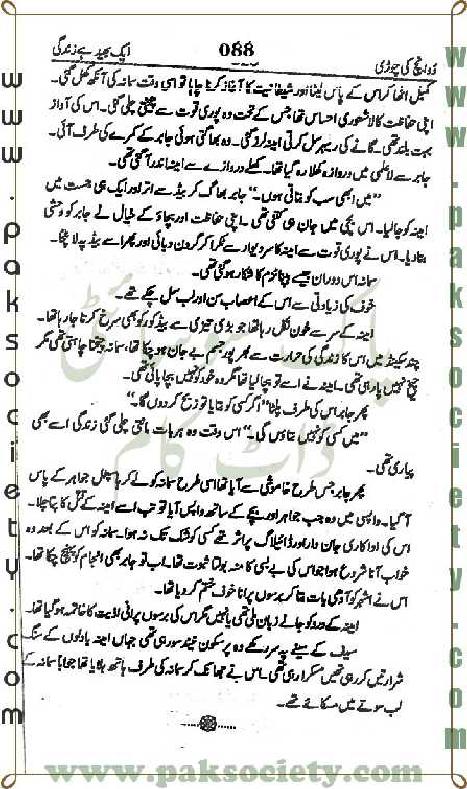 ردا ڈائجسٹ کی چوڑی 088 ایک بھید ہے زندگی
کمبل اٹھا کر اس کے پاس لیٹا اور شیطانیت کا آغاز کرنا چاہا تو اسی وقت سمانہ کی آنکھ کھل گئی۔
اپنی حفاظت کا لاشعوری احساس تھا جس کے تحت وہ پوری قوت سے چیختی چلی گئی۔ اس کی آواز
بہت بلند تھی۔ گانے کی ریہرسل کرتی امینہ لرز گئی۔ وہ بھاگتی ہوئی جابر کے کمرے کی طرف آئی۔
جابر سے لاعلمی میں دروازہ کھلا رہ گیا تھا۔ کھلے دروازے سے امینہ اندر آ گئی تھی۔
”میں ابھی سب کو بتاتی ہوں۔“ جابر بھاگ کر بیڈ سے اترا اور ایک ہی جست میں
امینہ کو جا لیا۔ اس بچی میں جان ہی کتنی تھی۔ اپنی حفاظت اور بچاؤ کے خیال نے جابر کو وحشی
بنا دیا۔ اس نے پوری قوت سے امینہ کا سر دیوار سے ٹکرا کر گردن دبائی اور پھر اسے بیڈ پہ لا پٹخا۔
سمانہ اس دوران جیسے ہپناٹزم کا شکار ہو گئی تھی۔
خوف کی زیادتی سے اس کے اعصاب سن اور لب سل چکے تھے۔
امینہ کے سر سے خون نکل رہا تھا جو بڑی تیزی سے بیڈ کور کو بھی سرخ کرتا جا رہا تھا۔
چند سیکنڈ میں اس کا زندگی کی حرارت سے بھرپور جسم بے جان ہو چکا تھا، سمانہ چیخنا چاہتی تھی مگر
چیخ نہیں پا رہی تھی۔ امینہ نے اسے تو بچا لیا تھا مگر وہ خود کو نہیں بچا پائی تھی۔
پھر جابر اس کی طرف پلٹا ”اگر کسی کو بتایا تو ذبح کر دوں گا۔“
”میں کسی کو نہیں بتاؤں گی۔“ اس وقت وہ ہر بات مانتی چلی گئی زندگی اسے بھی
پیاری تھی۔
پھر جابر جس طرح خاموشی سے آیا تھا اسی طرح سمانہ کو لے کر ہاسپٹل جواہر کے پاس
آ گیا۔ واپسی میں وہ جب جواہر اور بچے کے ساتھ واپس آیا تو تب اسے امینہ کے قتل کا پتا چلا۔
اس کی اداکاری جان دار اور ڈائیلاگ پراثر تھے کسی کو شک تک نہ ہوا۔ سمانہ کو اس کے بعد وہ
خواب آنا شروع ہوا جو اس کی بے بسی کا منہ بولتا ثبوت تھا۔ اب تو جابر بھی انجام کو پہنچ چکا تھا۔
اس نے اشہر کو آدمی بات بتا کر برسوں پرانا خوف ختم کر دیا تھا۔
امینہ کے درد کو جانے زبان ملی تھی یا نہیں مگر اس کی برسوں پرانی اذیت کا خاتمہ ہو گیا تھا۔
سیف کے سینے پہ سر رکھے وہ پرسکون نیند سو رہی تھی جہاں امینہ بادلوں کے سنگ
شرارتیں کر رہی تھیں مسکرا رہی تھی۔ اس نے جھانک کر سمانہ کی طرف ہاتھ ہلایا تھا جواباً سمانہ کے
لب سوتے میں مسکائے تھے۔
www.paksociety.com
www.paksociety.com
پاک سوسائٹی
ڈاٹ کام
www.paksociety.com